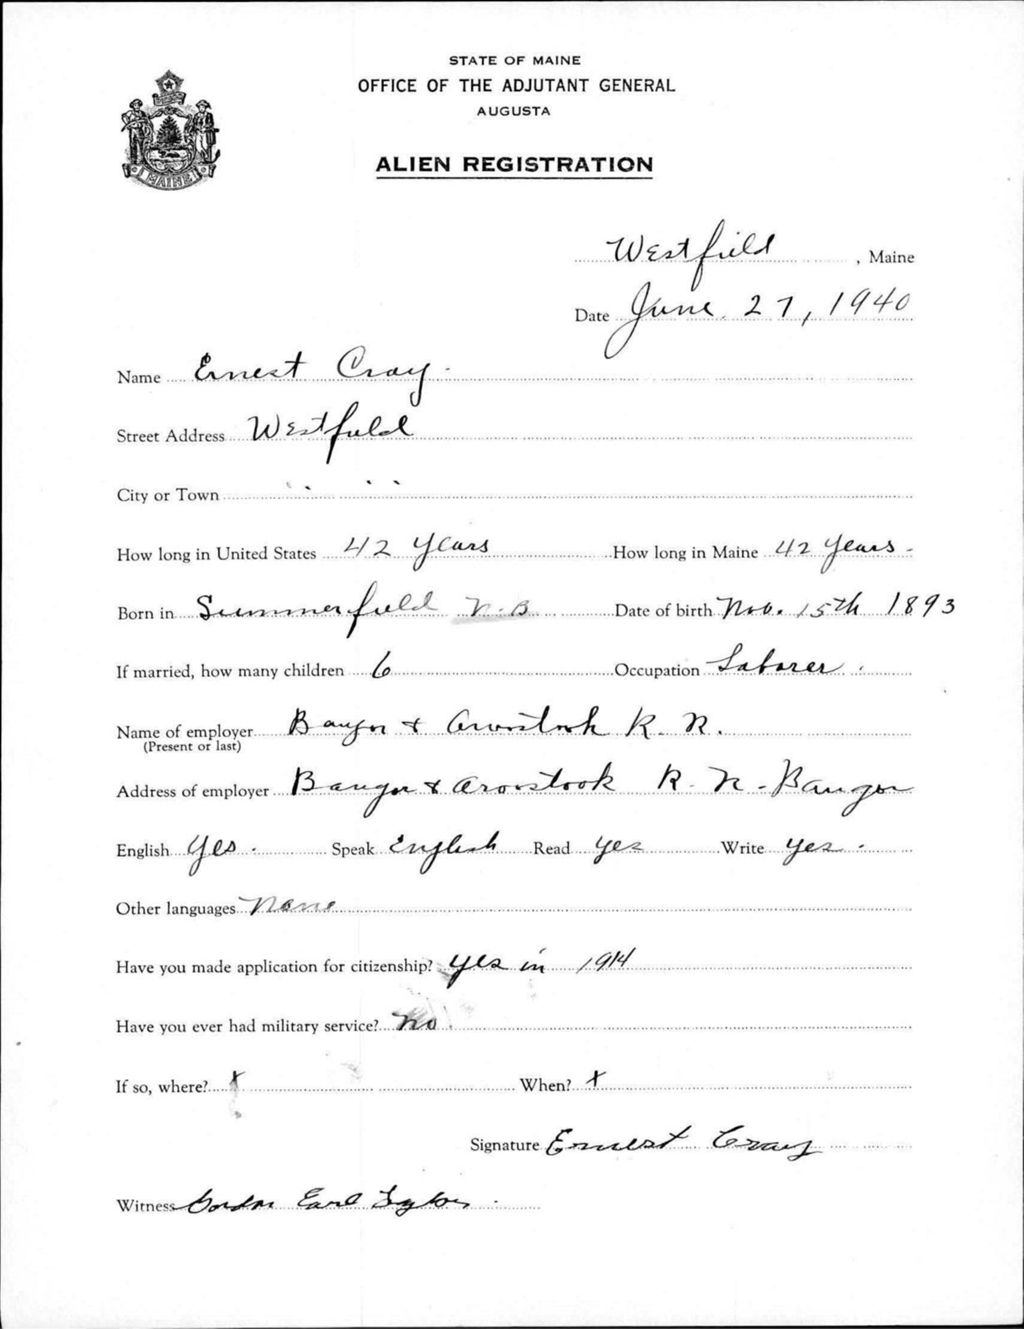 STATE OF MAINE
OFFICE OF THE ADJUTANT GENERAL
AUGUSTA
MAINE
ALIEN REGISTRATION
Westfield, Maine
Date June 27, 1940
Name Ernest Cray
Street Address Westfield
City or Town " "
How long in United States 42 years How long in Maine 42 years
Born in Summerfield N.B. Date of birth Nov. 15th 1893
If married, how many children 6 Occupation Laborer
Name of employer Bangor & Aroostook R. R.
(Present or last)
Address of employer Bangor & Aroostook R. R. - Bangor
English Yes. Speak English Read yes Write yes.
Other languages None
Have you made application for citizenship? yes in 1914
Have you ever had military service? No.
If so, where? x When? x
Signature Ernest Cray
Witness Gordon Earl